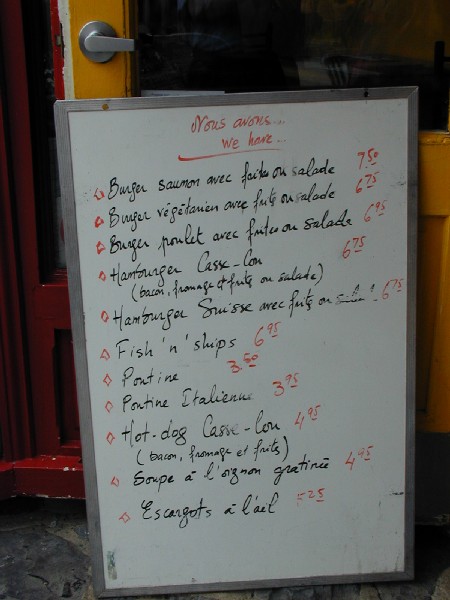 Nous avons...
we have...
Burger saumon avec frites ou salade 7.50
Burger végétarien avec frits ou salade 6.75
Burger poulet avec frites ou salade 6.95
Hamburger Casse-Cou 6.75
(bacon, fromage et frits ou salade)
Hamburger Suisse avec frits ou 6.75
Fish 'n' ships 6.95
Poutine 3.50
Poutine Italienne 3.95
Hot-dog Casse-Cou 4.95
(bacon, fromage et frits)
Soupe à l'oignon gratinée 4.95
Escargots à l'ail 5.25